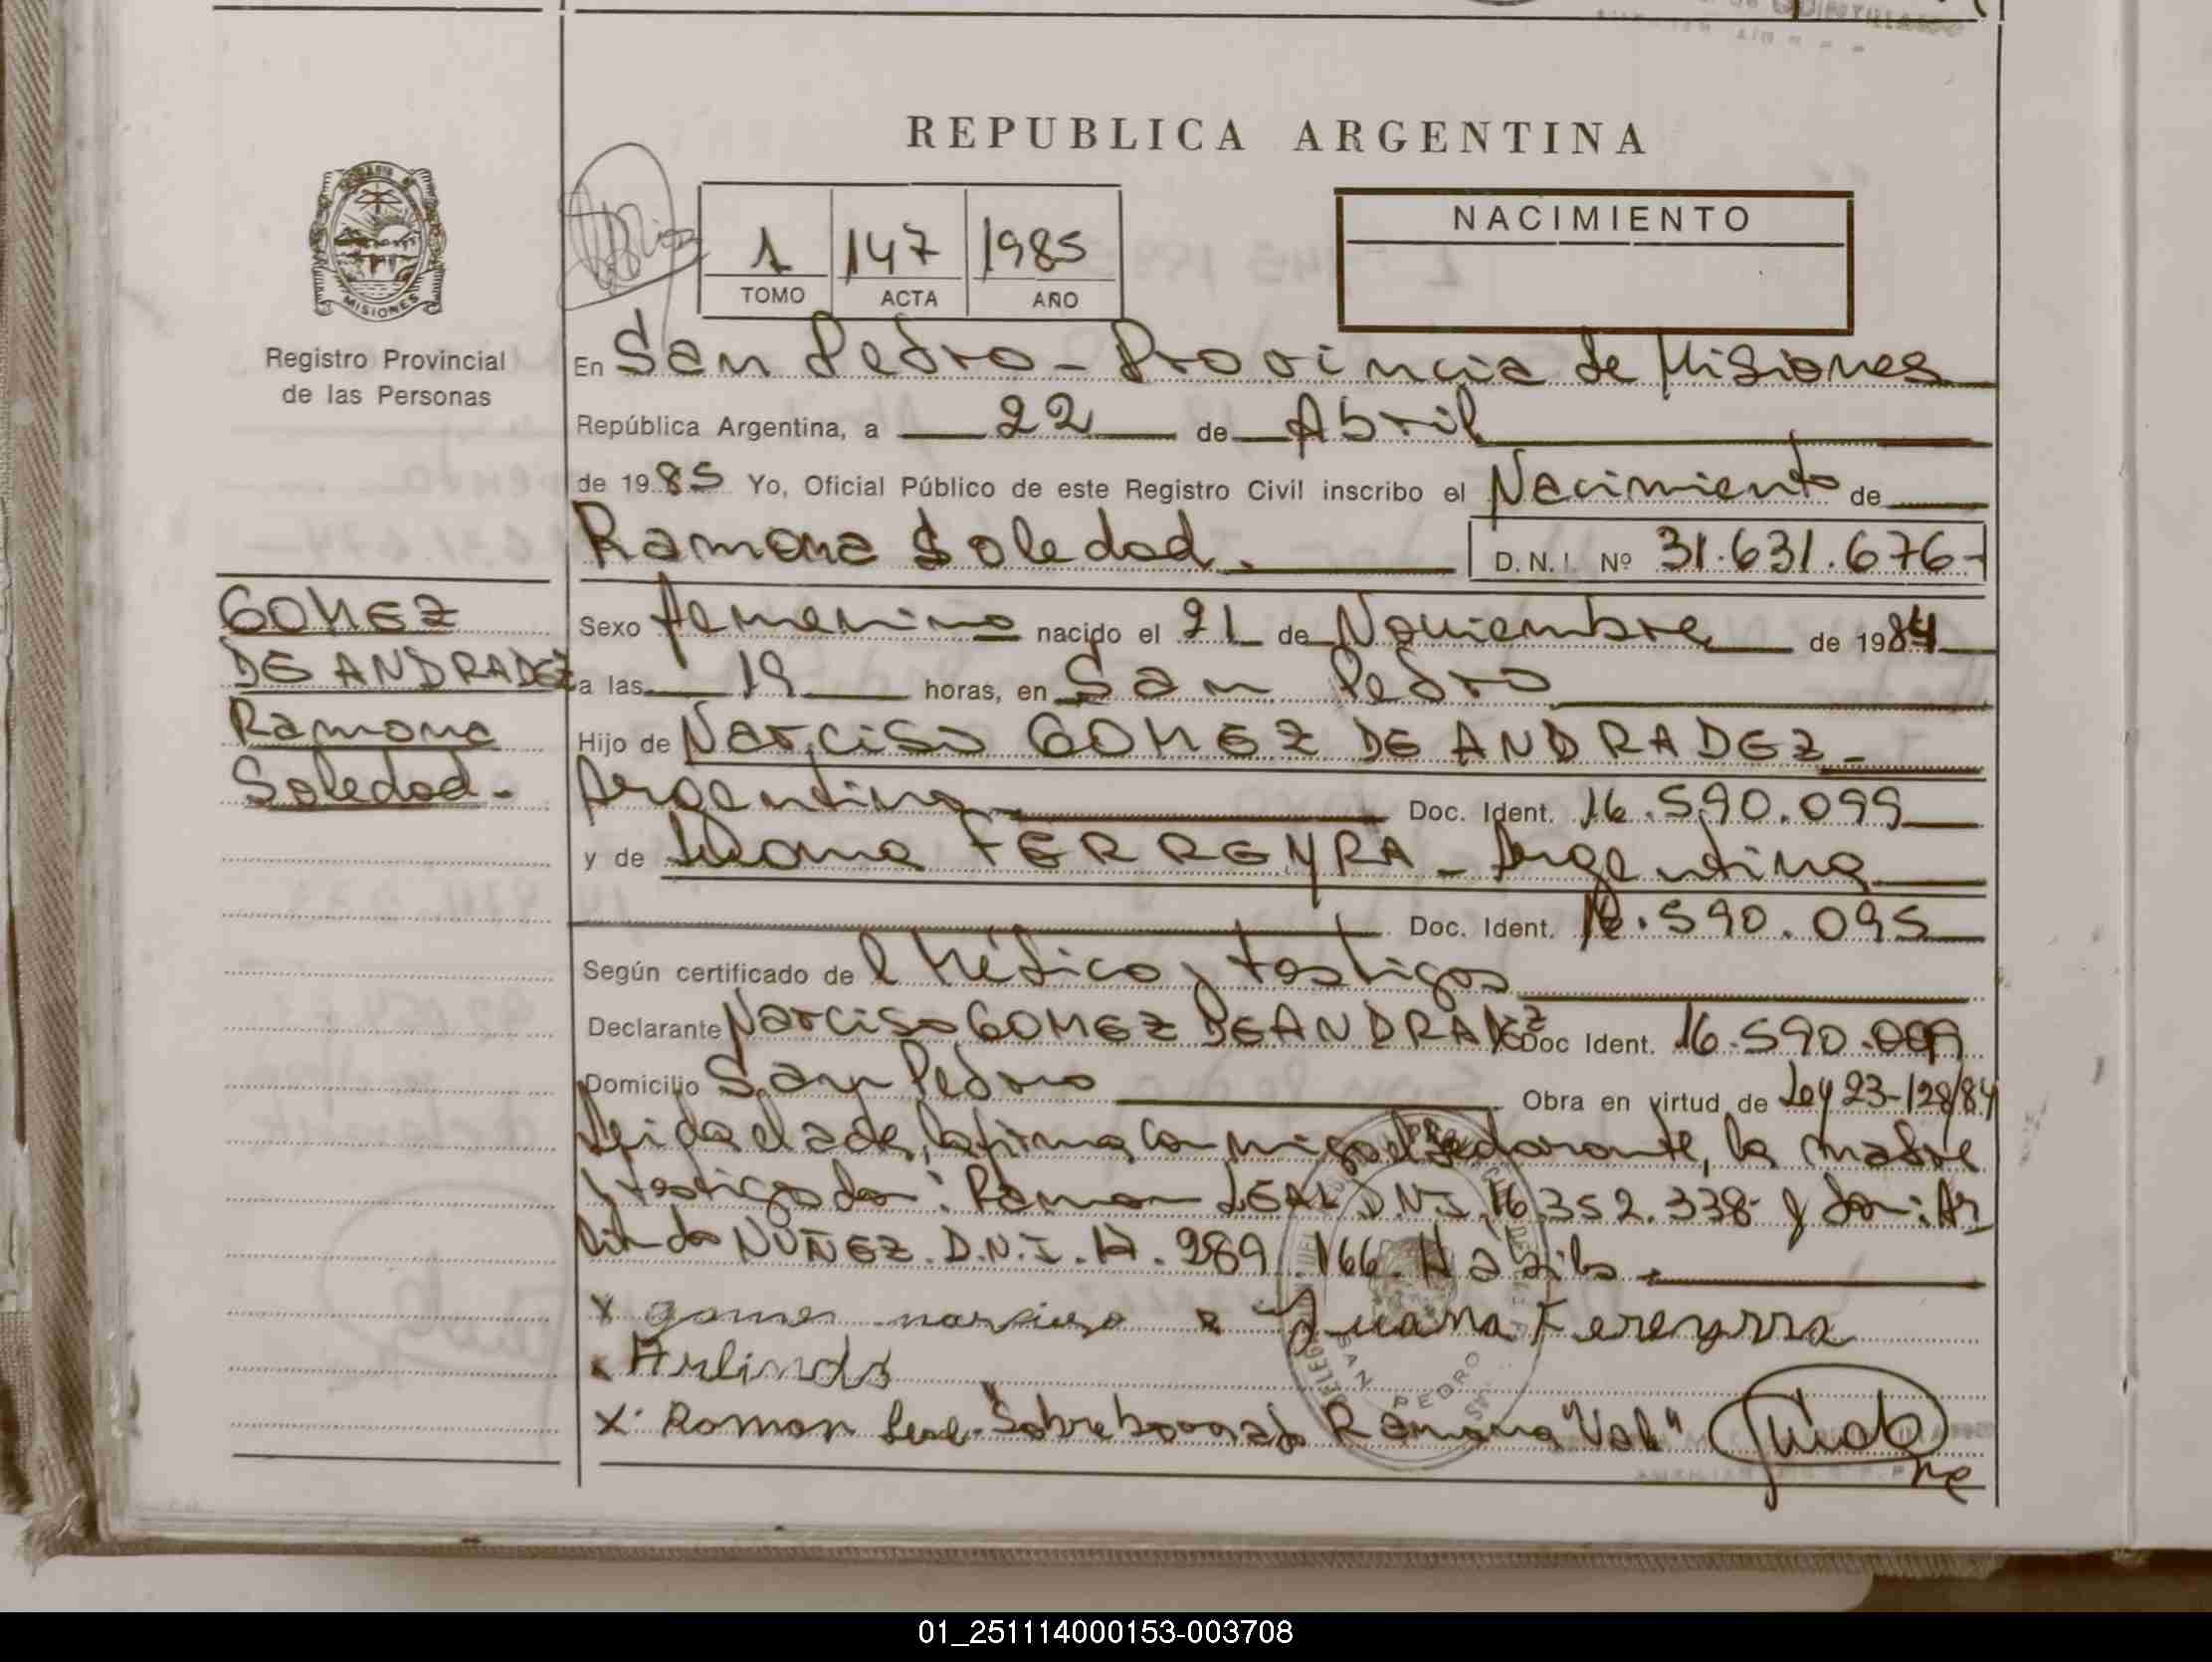 REPUBLICA ARGENTINA
MISIONES
Registro Provincial
de las Personas
1 147 1985
TOMO ACTA AÑO
NACIMIENTO
En San Pedro - Provincia de Misiones
República Argentina, a 22 de Abril
de 1985 Yo, Oficial Público de este Registro Civil inscribo el Nacimiento de
Ramona Soledad. D.N.I. Nº 31.631.676-
GOMEZ
DE ANDRADEZ
Ramona
Soledad-
Sexo femenino nacido el 21 de Noviembre de 1984
a las 19 horas, en San Pedro
Hijo de Narciso GOMEZ DE ANDRADEZ-
Argentino Doc. Ident. 16.590.099
y de FERREYRA - Argentina
Doc. Ident. .590.095
Según certificado de l Médico y testigos
Declarante Narciso GOMEZ DE ANDRADEZ Doc Ident. 16.590.099
Domicilio San Pedro Obra en virtud de Ley 23-128/84
Leida el acta, la firma con migo el declarante, la madre
y testigos don: Ramon LEAL D.N.I. 16.352.338- y don: Ar
lindo NUÑEZ. D.N.I. 17.989.166.
x gomes narsiso x Juana Fereyrra
x Arlindo
x Roman Leal- Sobre borrado Ramona "Vale"
SAN PEDRO
01_251114000153-003708